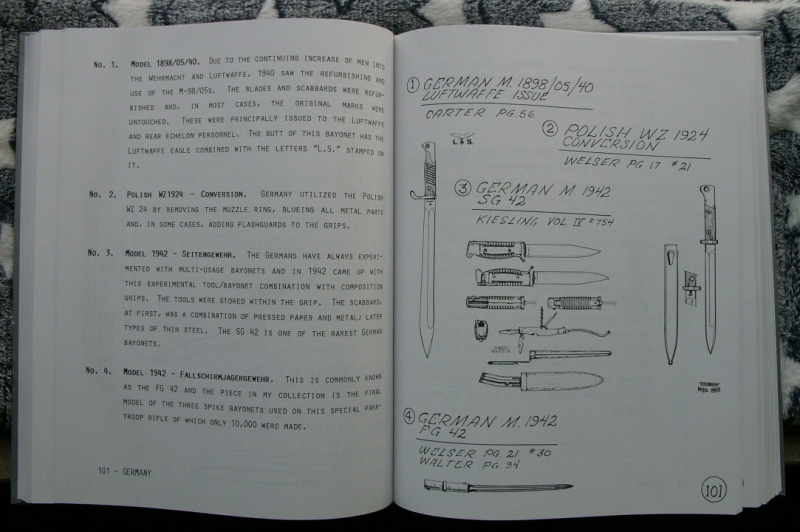 No. 1. Model 1898/05/40. Due to the continuing increase of men into
the Wehrmacht and Luftwaffe, 1940 saw the refurbishing and
use of the M-98/05s. The blades and scabbards were refur-
bished and, in most cases, the original marks were
untouched. These were principally issued to the Luftwaffe
and rear echelon personnel. The butt of this bayonet has the
Luftwaffe eagle combined with the letters "L.S." stamped on
it.
No. 2. Polish WZ1924 - Conversion. Germany utilized the Polish
WZ 24 by removing the muzzle ring, blueing all metal parts
and, in some cases, adding flashguards to the grips.
No. 3. Model 1942 - Seitengewehr. The Germans have always experi-
mented with multi-usage bayonets and in 1942 came up with
this experimental tool/bayonet combination with composition
grips. The tools were stored within the grip. The scabbard,
at first, was a combination of pressed paper and metal; later
types of thin steel. The SG 42 is one of the rarest German
bayonets.
No. 4. Model 1942 - Fallschirmjagergewehr. This is commonly known
as the FG 42 and the piece in my collection is the final
model of the three spike bayonets used on this special para-
troop rifle of which only 10,000 were made.
101 - GERMANY
① GERMAN M. 1898/05/40
LUFTWAFFE ISSUE
CARTER PG. 56
L.S.
② POLISH WZ 1924
CONVERSION
WELSER PG 17 #21
③ GERMAN M 1942
SG 42
KIESLING VOL. IV #754
④ GERMAN M. 1942
FG 42
WELSER PG. 21 #30
WALTER PG. 94
101